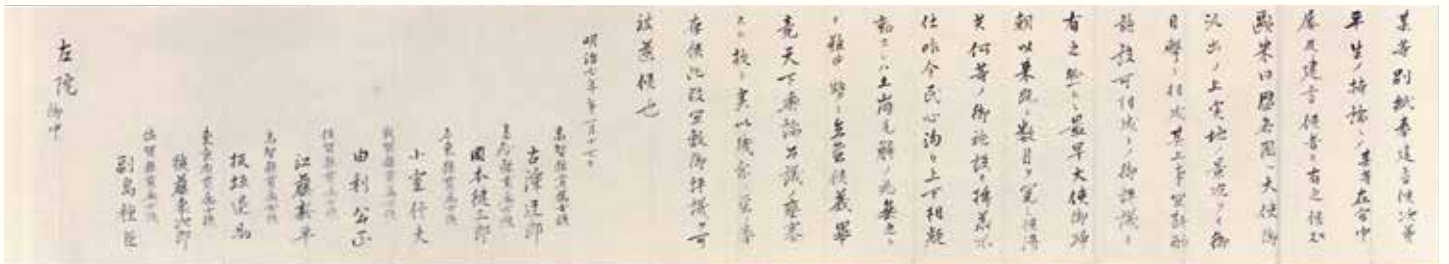 某等別紙奉建言候次第
平生ノ持論ニシテ某等在官中
屡及建言候者モ有之候処
欧米同盟各国ヘ大使御
派出ノ上実地ノ景況ヲモ御
目撃ニ相成其上事宜斟酌
施設可相成トノ御評議モ
有之然ルニ最早大使御帰
朝以来既ニ数月ヲ閲シ候得
共何等ノ御施設モ拝承不
仕昨今民心洶々上下相疑
動モスレハ土崩瓦解ノ兆無之ト
モ難申勢ニ立至候義畢
竟天下輿論公議ノ壅塞
スル故ト実以残念ノ至ニ奉
存候此段宜敷御評議ヲ可
被遂候也
明治七年第一月十七日
高知縣貫属士族
古澤迂郎
高知縣貫属士族
岡本健三郎
名東縣貫属士族
小室信夫
敦賀縣貫属士族
由利公正
佐賀縣貫属士族
江藤新平
高知縣貫属士族
板垣退助
東京府貫属士族
後藤象次郎
佐賀縣貫属士族
副島種臣
左院
御中